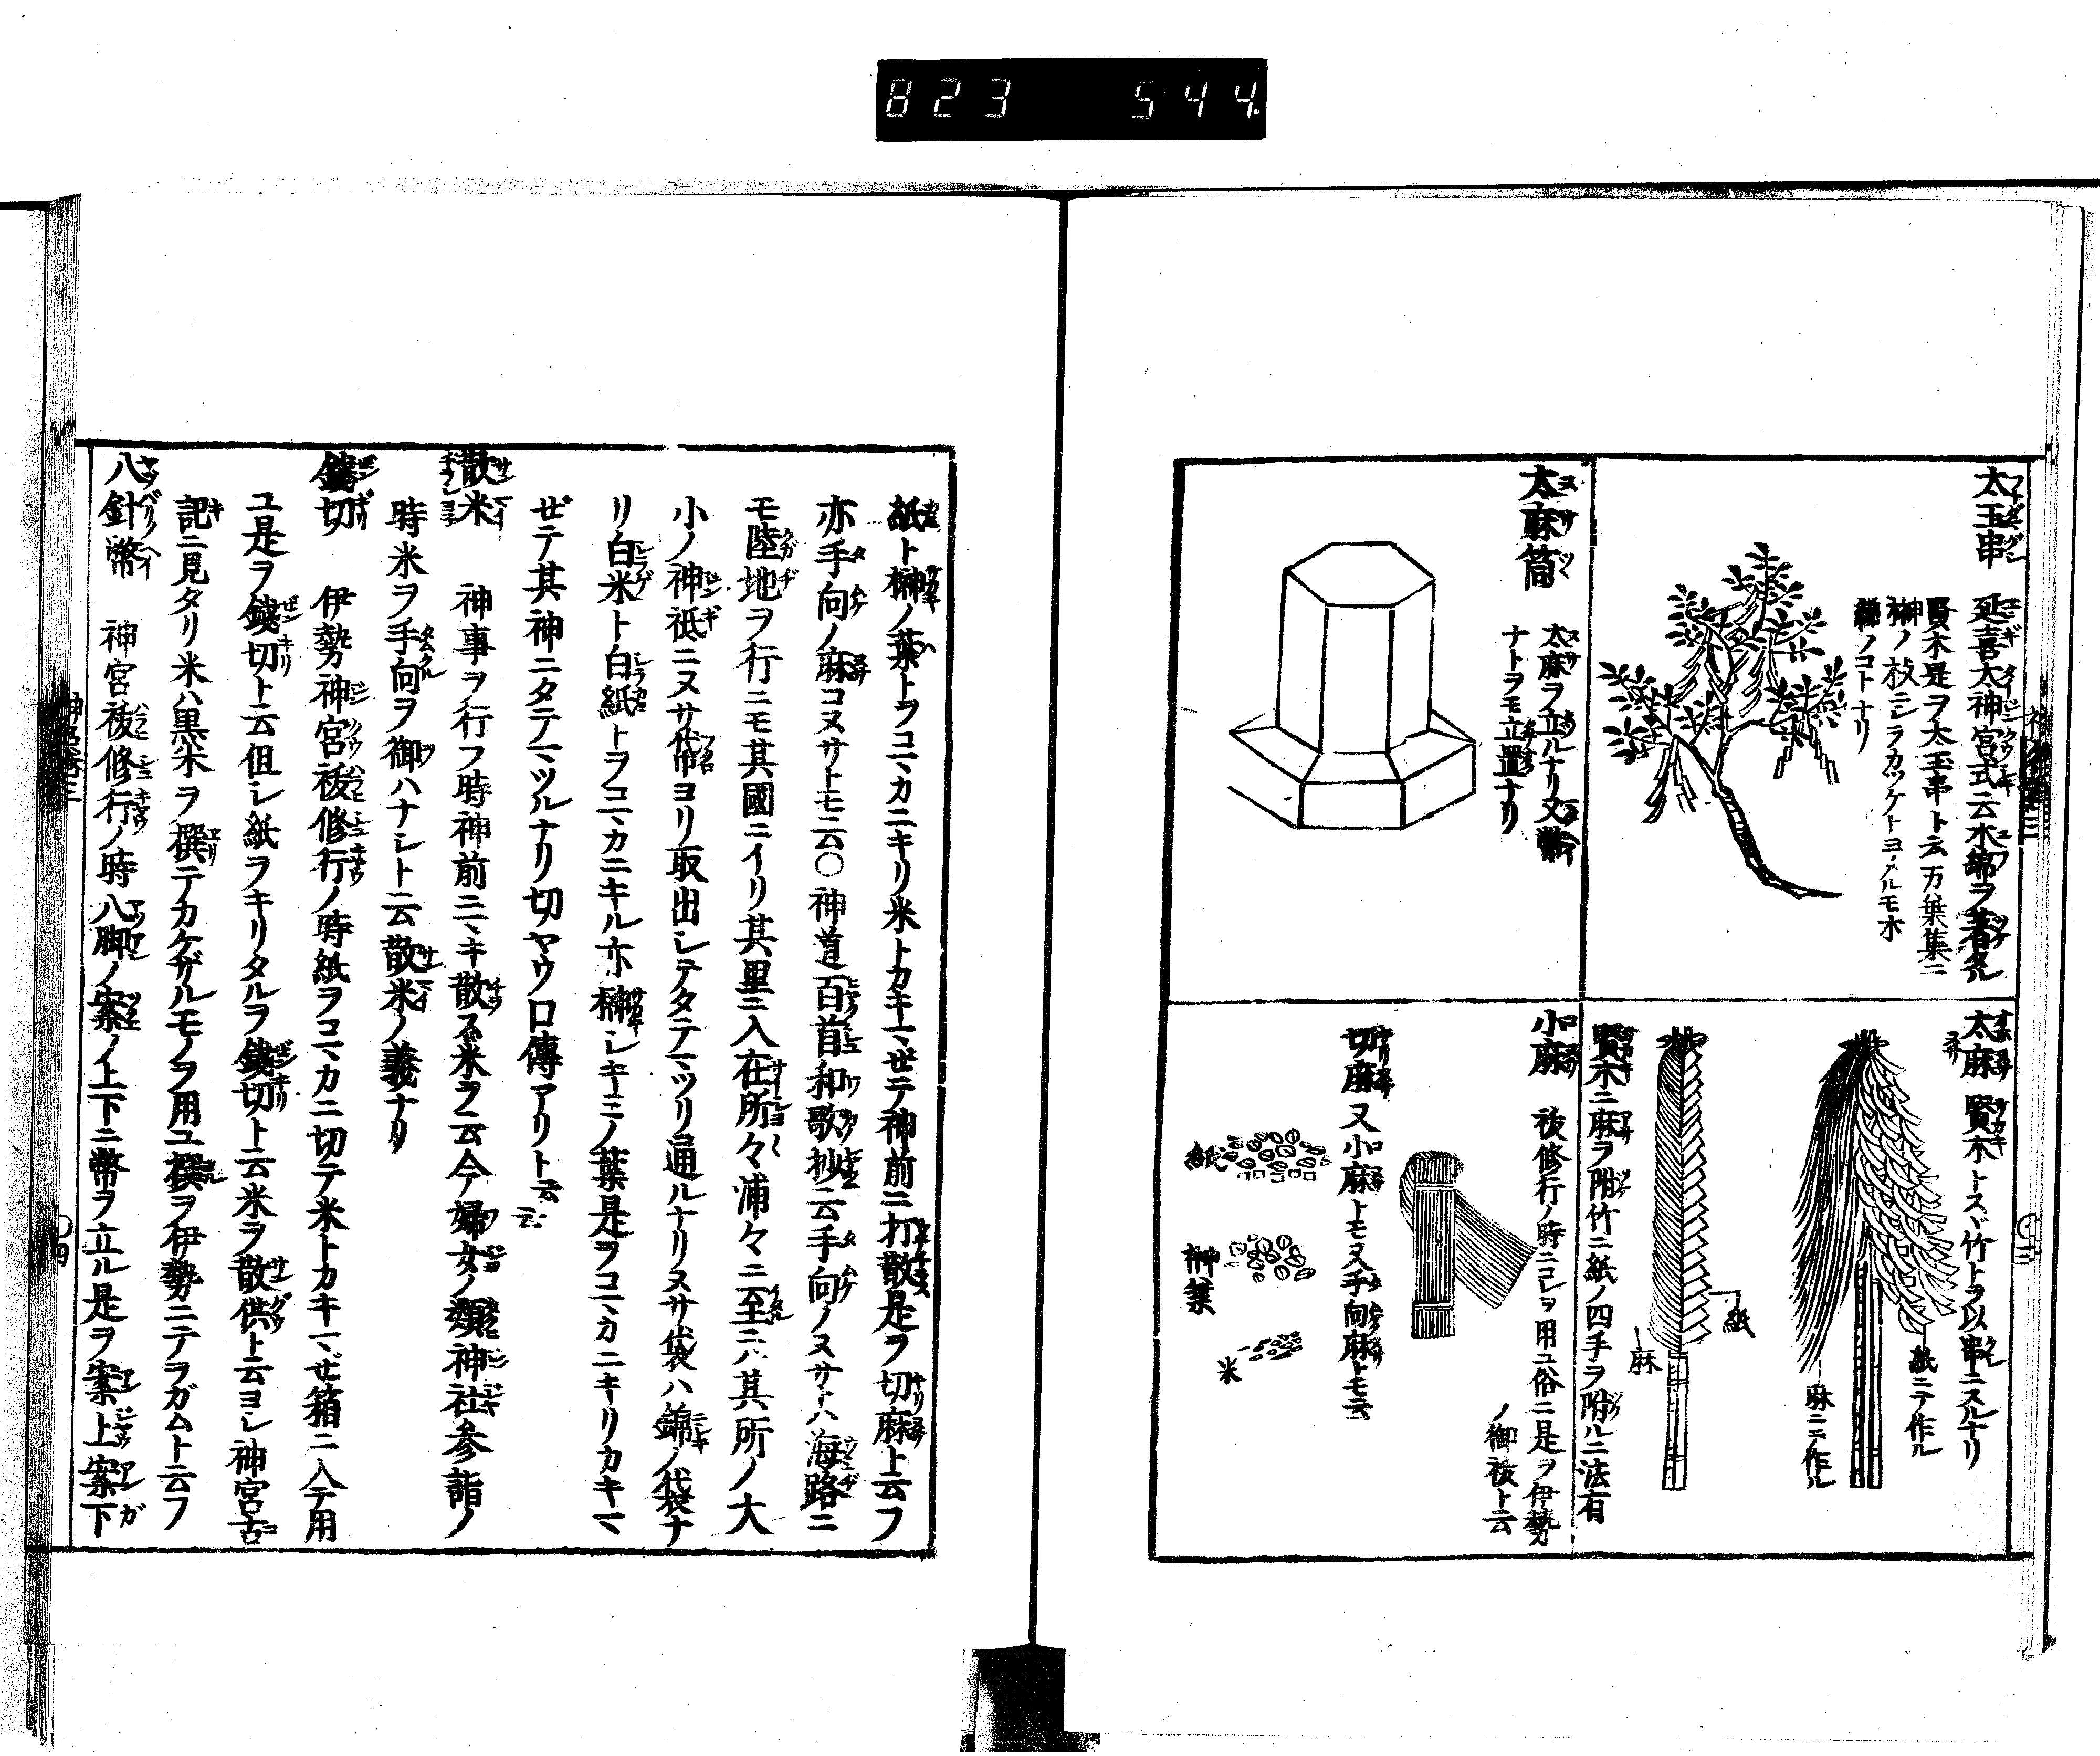 823 544.
太玉串 延喜太神宮式云木綿ヲ著タル
賢木是ヲ太玉串ト云万葉集ニ
榊ノ枝ニシラカツケトヨメルモ木
綿ノコトナリ
太麻筒 太麻ヲ立ルナリ又幣
ナトヲモ立置ナリ
太麻 賢木トスヾ竹トヲ以串ニスルナリ
紙ニテ作ル
麻ニテ作ル
紙
麻
賢木ニ麻ヲ附竹ニ紙ノ四手ヲ附ルニ法有
小麻 祓修行ノ時ニコレヲ用ユ俗ニ是ヲ伊勢
ノ御祓ト云
切麻 又小麻トモ又手向麻トモ云
紙
榊葉
米
紙ト榊ノ葉トヲコマカニキリ米トカキマゼテ神前ニ打散是ヲ切麻ト云フ
亦手向ノ麻コヌサトモ云〇神道百首和歌抄云手向ノヌサハ海路ニ
モ陸地ヲ行ニモ其國ニイリ其里ニ入在所々浦々ニ至ニハ其所ノ大
小ノ神祇ニヌサ袋ヨリ取出シテタテマツリ通ルナリヌサ袋ハ錦ノ袋ナ
リ白米ト白紙トヲコマカニキル亦榊シキミノ葉是ヲコマカニキリカキマ
ゼテ其神ニタテマツルナリ切ヤウ口傳アリト云云
散米 神事ヲ行フ時神前ニマキ散ス米ヲ云今婦女ノ類神社参詣ノ
時米ヲ手向ヲ御ハナシト云散米ノ義ナリ
錢切 伊勢神宮祓修行ノ時紙ヲコマカニ切テ米トカキマゼ箱ニ入テ用
ユ是ヲ錢切ト云但シ紙ヲキリタルヲ錢切ト云米ヲ散供ト云ヨシ神宮古
記ニ見タリ米ハ黒米ヲ撰テカケザルモノヲ用ユ撰ヲ伊勢ニテヲガムト云フ
八針幣 神宮祓修行ノ時八脚ノ案ノ上下ニ幣ヲ立ル是ヲ案上案下